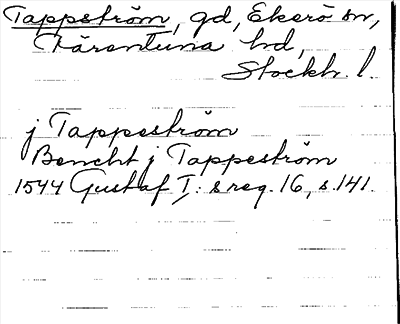 Tappström, gd, Ekerö sn,
Färentuna hd,
Stockh. l.
j Tappeström
Bencht j Tappeström
1544 Gustaf I: s reg. 16, s. 141.